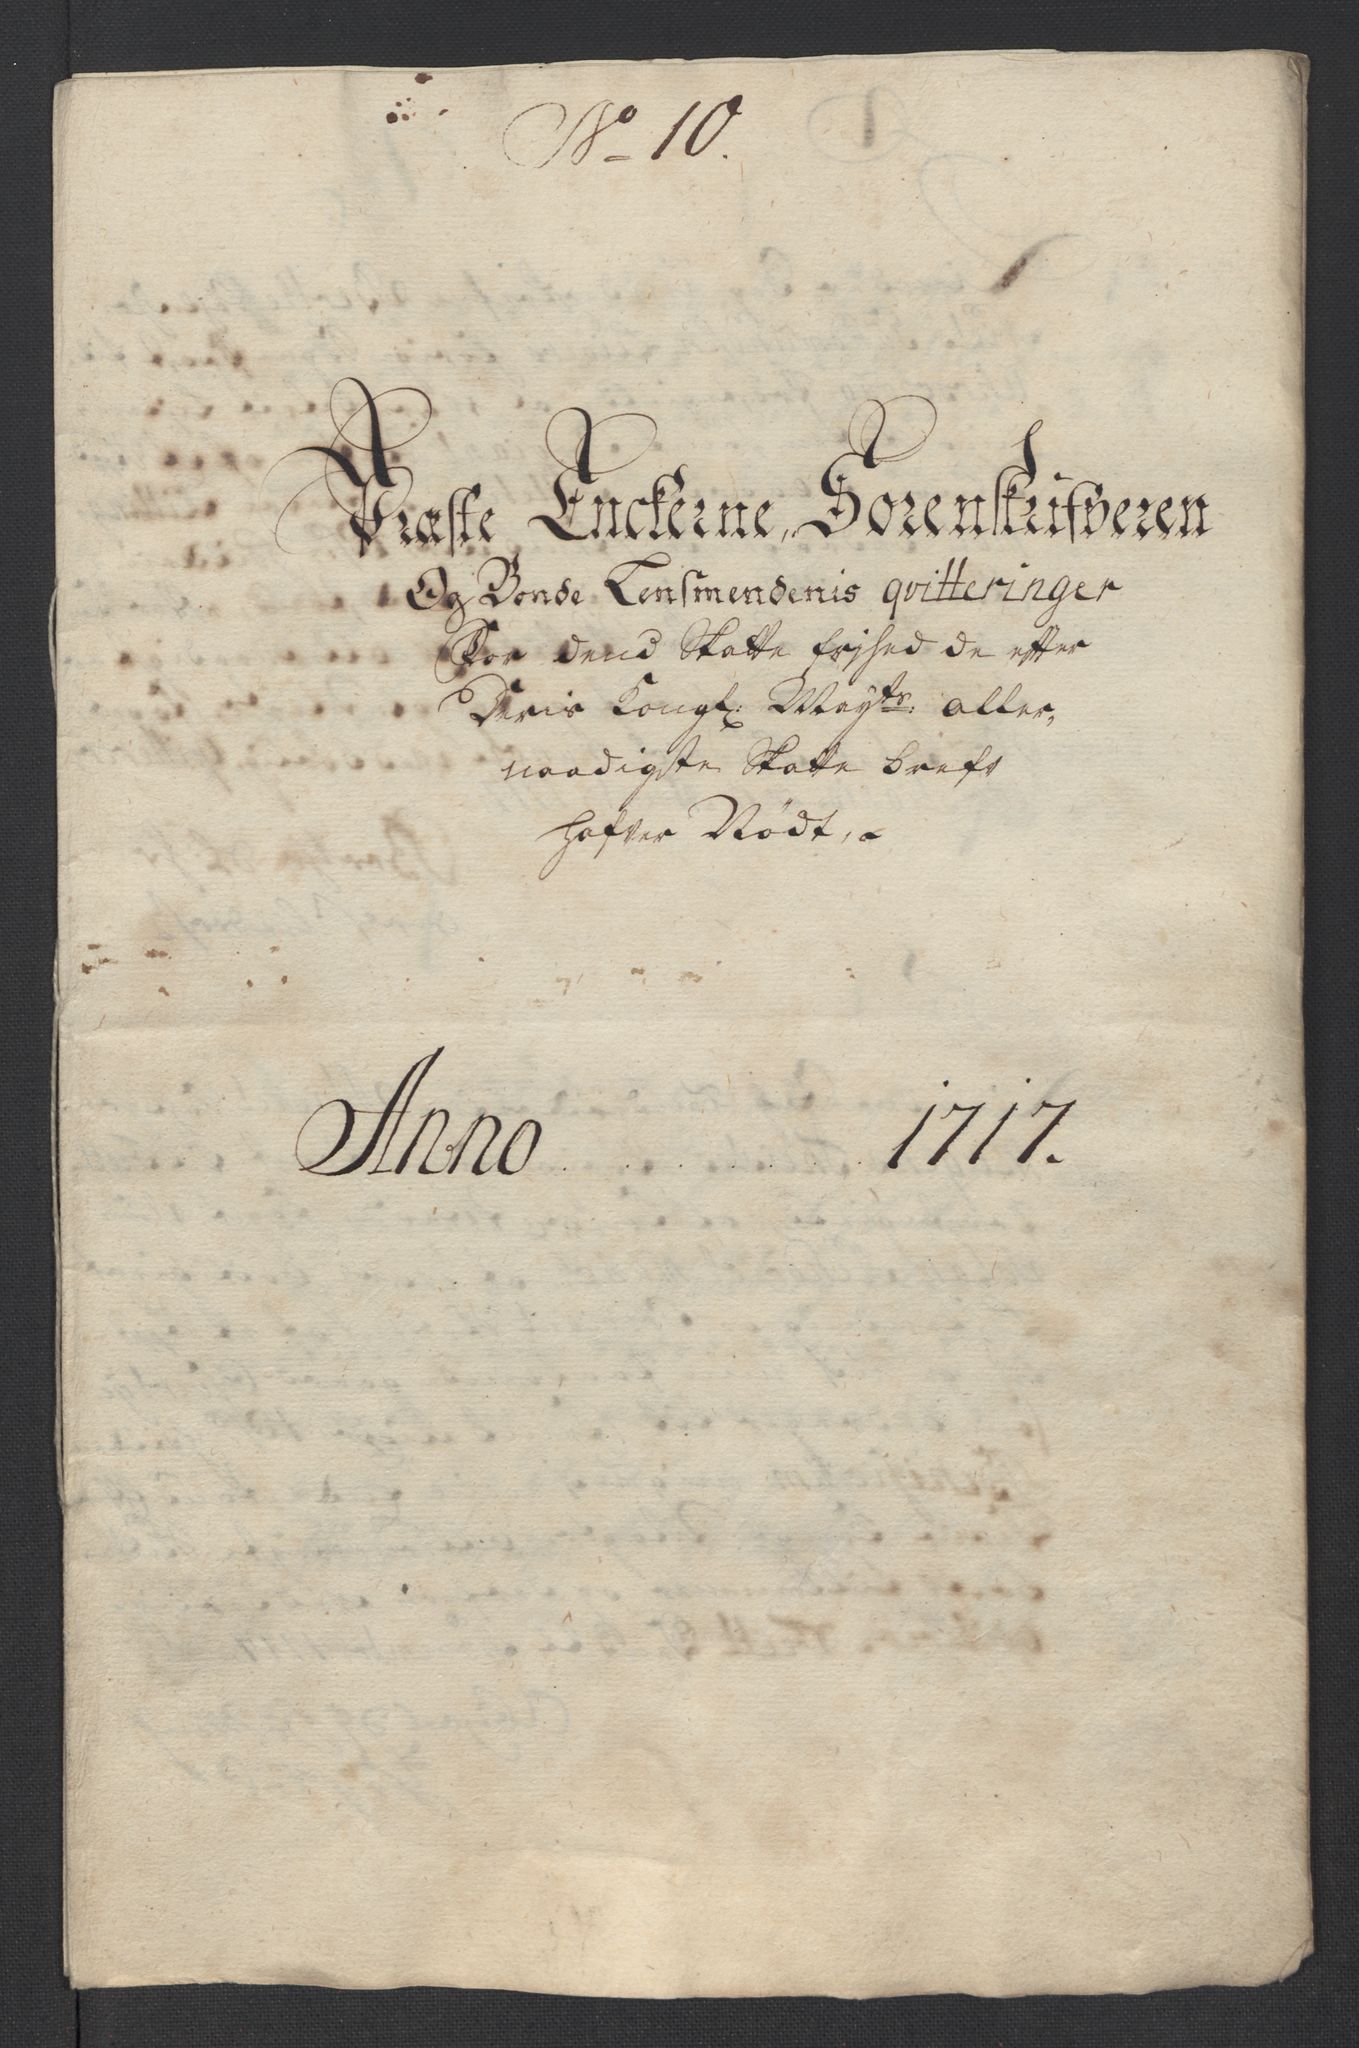 No 10.
Præste Enckerne, Sorenskrifveren
Og Bonde Lensmendenis qvitteringer
For dend Skatte frjhed de efter
Deris Kongl: Mayts: aller,
naadigste Skatte brefv
hafver Nÿdt,
Anno 1717.